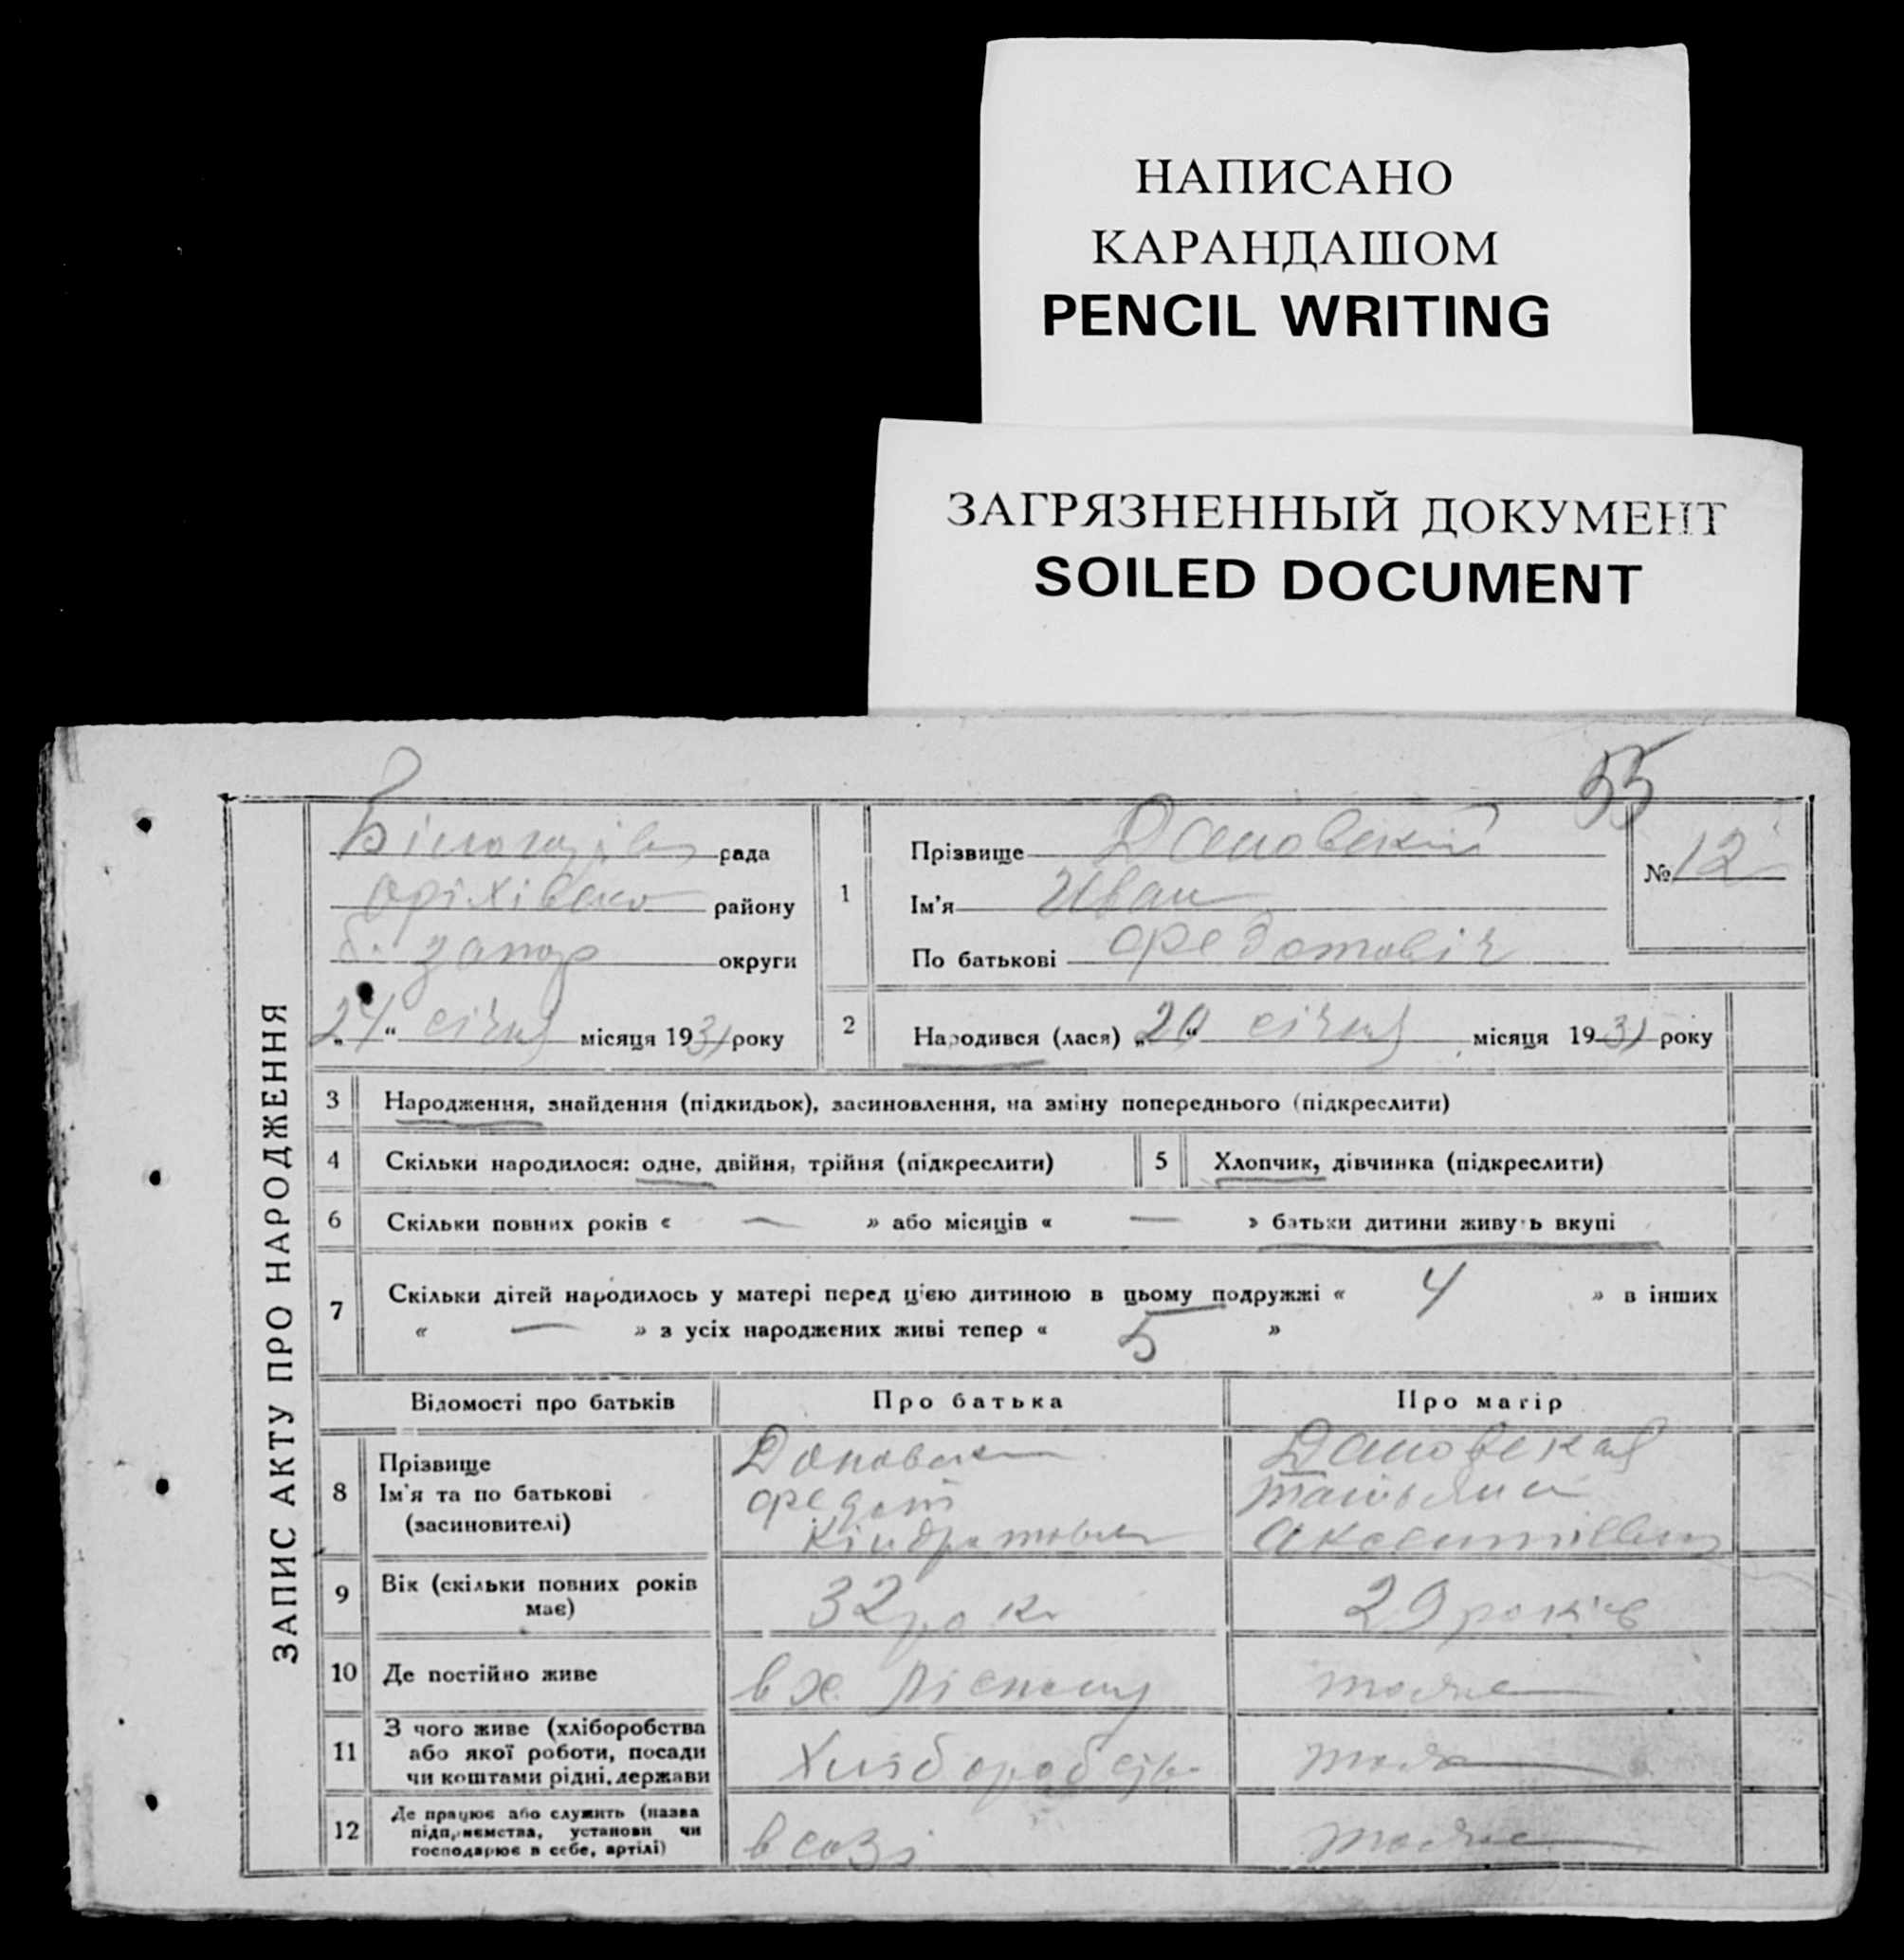 НАПИСАНО
КАРАНДАШОМ
PENCIL WRITING
ЗАГРЯЗНЕННЫЙ ДОКУМЕНТ
SOILED DOCUMENT
55
ЗАПИС АКТУ ПРО НАРОДЖЕННЯ
рада
району
б. запор округи
„24“ січня місяця 1931 року
1
Прізвище
Ім'я Иван
По батькові Федотовіч
№ 12
2 Народився (лася) „20“ січня місяця 1931 року
3 Народження, знайдення (підкидьок), засиновлення, на зміну попереднього (підкреслити)
4 Скільки народилося: одне, двійня, трійня (підкреслити) 5 Хлопчик, дівчинка (підкреслити)
6 Скільки повних років « — » або місяців « — » батьки дитини живуть вкупі
7 Скільки дітей народилось у матері перед цією дитиною в цьому подружжі « 4 » в інших
« — » з усіх народжених живі тепер « 5 »
Відомості про батьків Про батька Про матір
8 Прізвище
Ім'я та по батькові Федот
(засиновителі)
9 Вік (скільки повних років має) 32 рок 29 років
10 Де постійно живе в х. тоже
11 З чого живе (хліборобства
або якої роботи, посади
чи коштами рідні, держави тоже
12 Де працює або служить (назва
підприємства, установи чи
господарює в себе, артілі) в созі тоже